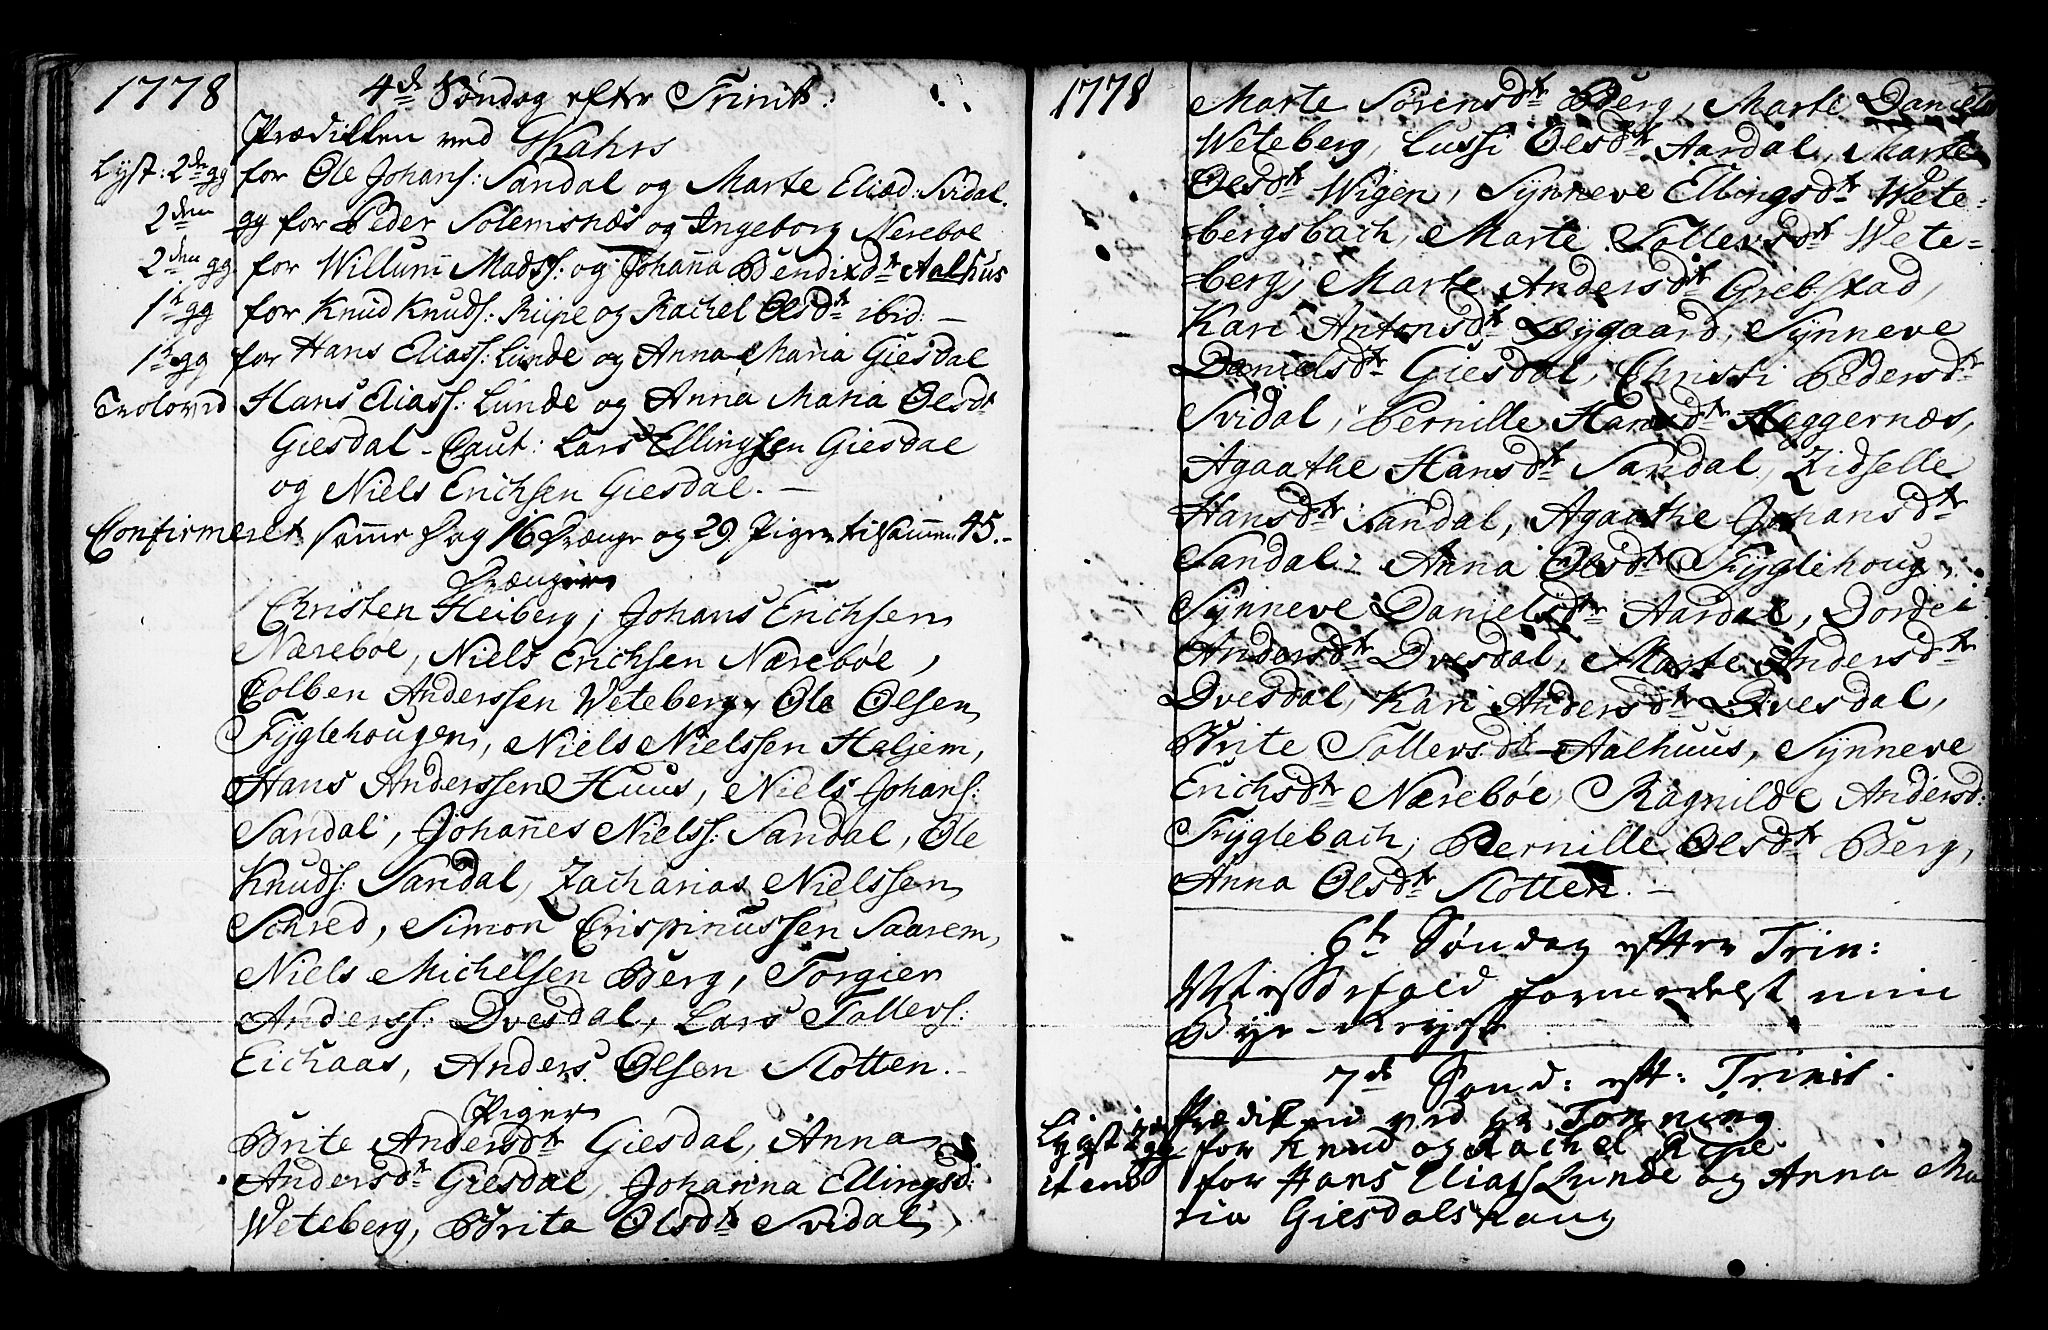 1778
4de Søndag efter Trinit:
Prædiken ved GKahrs
Lyst: 2den gg for Ole Johans: Sandal og Marte Eliæd: Svidal.
2den gg for Peder Solemsnæs og Ingeborg Nereboe
2den gg. for Willum Madss: og Johanna Bendixdtr Aalhus
1te gg for Knud Knuds: Riipe og Rachel Olsdtr ibid: —
1te gg for Hans Eliass: Lunde og Anna Maria Giesdal
Trolovid Hans Eliass: Lunde og Anna Maria Olsdtr
Giesdal - Caut: Lars Ellingsen Giesdal
og Niels Erichsen Giesdal. —
Confirmeret samme Dag 16 Drænge og 29 Piger tilsammen 45.-
Drænger
Christen Heiberg, Johans Erichsen
Nærebøe, Niels Erichsen Nærebøe,
Colben Anderssen Weteberg, Ole Olsen
Fyglehougen, Niels Nielssen Haljem,
Hans Anderssen Huus, Niels Johans:
Sandal, Johannes Nielss: Sandal, Ole
Knuds: Sandal, Zacharias Nielssen
Schred, Simon Crispinussen Saarem,
Niels Michelsen Berg, Torgier
Anderss: Dvesdal, Lars Tollers:
Eichaas, Anders Olsen Slotten.-
Piger
Brite Andersdtr Giesdal, Anna
Andersdtr Giesdal, Johanna Ellingsd:
Weteberg, Brita Olsdtr Svidal,
1778
Marte Sørensdtr Berg, Marte Daniels
Weteberg, Lussi Olsdtr Aardal, Marte
Olsdtr Wigen, Synneve Ellingsdtr Wete-
bergsbach, Marte Tollersdtr Wete-
berg, Marte Andersdtr Grebstad,
Kari Antonsdtr Øygaard, Synneve
Danielsdtr Giesdal, Christi Pedersdtr
Svidal, Pernille Hansdtr Heggernæs,
Agaathe Hansdtr Sandal, Zidselle
Hansdtr Sandal, Agaathe Johansdtr
Sandal, Anna Olsdtr Fyglehoug,
Synneve Danielsdtr Aardal, Dordei
Andersdtr Dvesdal, Marte Andersdtr
Dvesdal, Kari Andersdtr Dvesdal,
Brite Tollersdtr Aalhuus, Synneve
Erichsdtr Nærebøe, Ragnilde Andersd:
Fyglebach, Pernille Olsdtr Berg,
Anna Olsdtr Slotten. —
6te Søndag efter Trin:
Messefald formedelst min
Bye-Reyse
7de Sønd: eft: Trinit.
Prædiken ved Hr Tonning
Lyst gg for Knud og Rachel Ripe
item for Hans Eliass Lunde og Anna Ma
ria Giesdalshaug